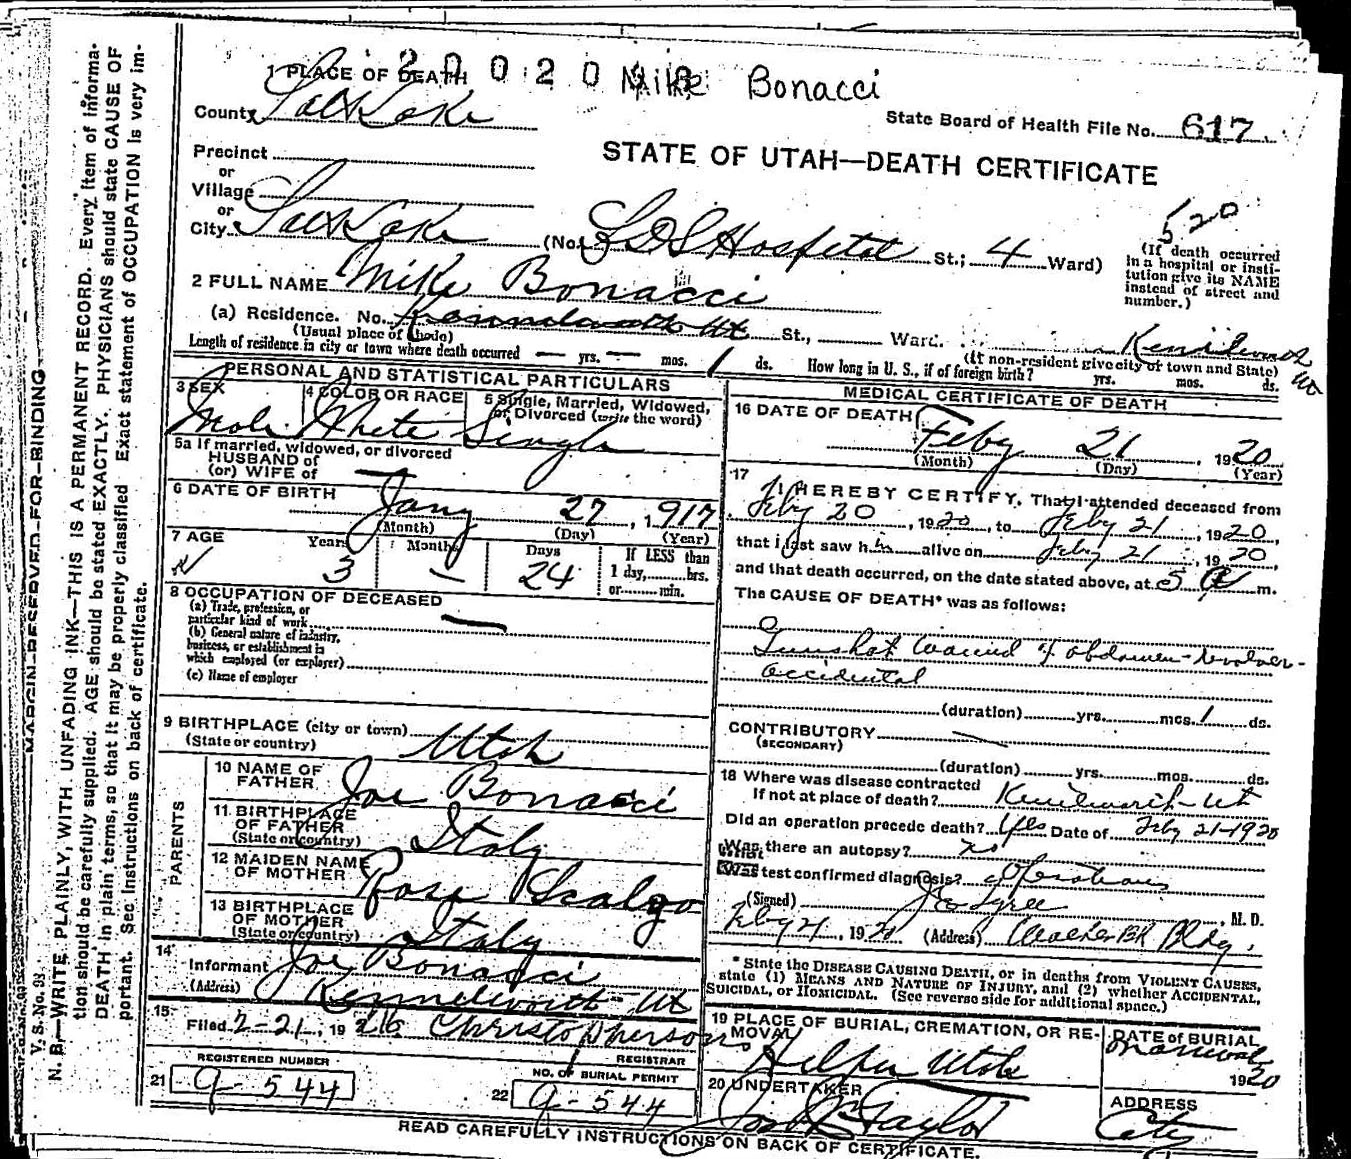 1 PLACE OF DEATH 2 0 0 2 0 Mike Bonacci
County Salt Lake
State Board of Health File No. 617
Precinct
or
Village
STATE OF UTAH—DEATH CERTIFICATE
or
City Salt Lake (No. LDS Hospital St.; 4 Ward)
520
(If death occurred
in a hospital or insti-
tution give its NAME
instead of street and
number.)
2 FULL NAME Mike Bonacci
(a) Residence. No. Kennelworth Ut St., Ward. Kenilworth Ut
(Usual place of abode) (If non-resident give city or town and State)
Length of residence in city or town where death occurred — yrs. — mos. 1 ds. How long in U. S., if of foreign birth? yrs. mos. ds.
PERSONAL AND STATISTICAL PARTICULARS
3 SEX 4 COLOR OR RACE 5 Single, Married, Widowed,
or Divorced (write the word)
Male White Single
5a If married, widowed, or divorced
HUSBAND of
(or) WIFE of —
6 DATE OF BIRTH Jany 27, 1917
(Month) (Day) (Year)
7 AGE Years Months Days If LESS than
3 — 24 1 day, hrs.
or min.
8 OCCUPATION OF DECEASED
(a) Trade, profession, or
particular kind of work —
(b) General nature of industry,
business, or establishment in
which employed (or employer)
(c) Name of employer
9 BIRTHPLACE (city or town)
(State or country) Utah
PARENTS
10 NAME OF
FATHER Joe Bonacci
11 BIRTHPLACE
OF FATHER
(State or country) Italy
12 MAIDEN NAME
OF MOTHER Rose Scalzo
13 BIRTHPLACE
OF MOTHER
(State or country) Italy
14
Informant Joe Bonacci
(Address) Kennelworth - Ut
15
Filed 2-21, 19 Christopherson
REGISTRAR
REGISTERED NUMBER
21 9-544
NO. OF BURIAL PERMIT
22 9-544
MEDICAL CERTIFICATE OF DEATH
16 DATE OF DEATH
Feby 21, 1920
(Month) (Day) (Year)
17 I HEREBY CERTIFY, That I attended deceased from
Feby 20, 1920, to Feby 21, 1920,
that I last saw him alive on Feby 21, 1920,
and that death occurred, on the date stated above, at 5 a m.
The CAUSE OF DEATH* was as follows:
Gunshot wound of abdomen - revolver -
accidental
(duration) yrs. mos. 1 ds.
CONTRIBUTORY —
(SECONDARY)
(duration) yrs. mos. ds.
18 Where was disease contracted
If not at place of death? Kenilworth - Ut
Did an operation precede death? Yes Date of Feby 21-1920
Was there an autopsy? no
What test confirmed diagnosis? Operation
(Signed) , M. D.
Feby 21, 1920 (Address) Walker Bk Bldg.
* State the DISEASE CAUSING DEATH, or in deaths from VIOLENT CAUSES,
state (1) MEANS AND NATURE OF INJURY, and (2) whether ACCIDENTAL,
SUICIDAL, or HOMICIDAL. (See reverse side for additional space.)
19 PLACE OF BURIAL, CREMATION, OR RE-
MOVAL Helper Utah
DATE of BURIAL
1920
20 UNDERTAKER
Jos Wm Taylor
ADDRESS
City
READ CAREFULLY INSTRUCTIONS ON BACK OF CERTIFICATE.
MARGIN RESERVED FOR BINDING
V. S. No. 33.
N. B.—WRITE PLAINLY, WITH UNFADING INK—THIS IS A PERMANENT RECORD. Every item of informa-
tion should be carefully supplied. AGE should be stated EXACTLY. PHYSICIANS should state CAUSE OF
DEATH in plain terms, so that it may be properly classified. Exact statement of OCCUPATION is very im-
portant. See instructions on back of certificate.